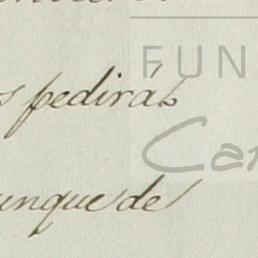 FUN
s pedirá
Can
unque de